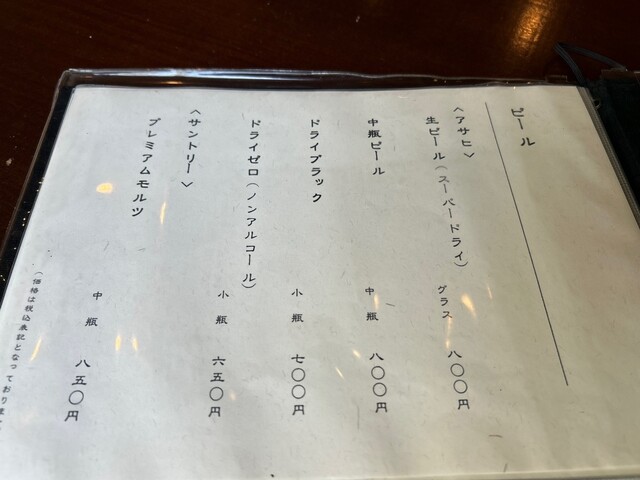 ビール
〈アサヒ〉
生ビール(スーパードライ) グラス 八〇〇円
中瓶ビール 中瓶 八〇〇円
ドライブラック 小瓶 七〇〇円
ドライゼロ(ノンアルコール) 小瓶 六五〇円
〈サントリー〉
プレミアムモルツ 中瓶 八五〇円
(価格は税込表記となっております